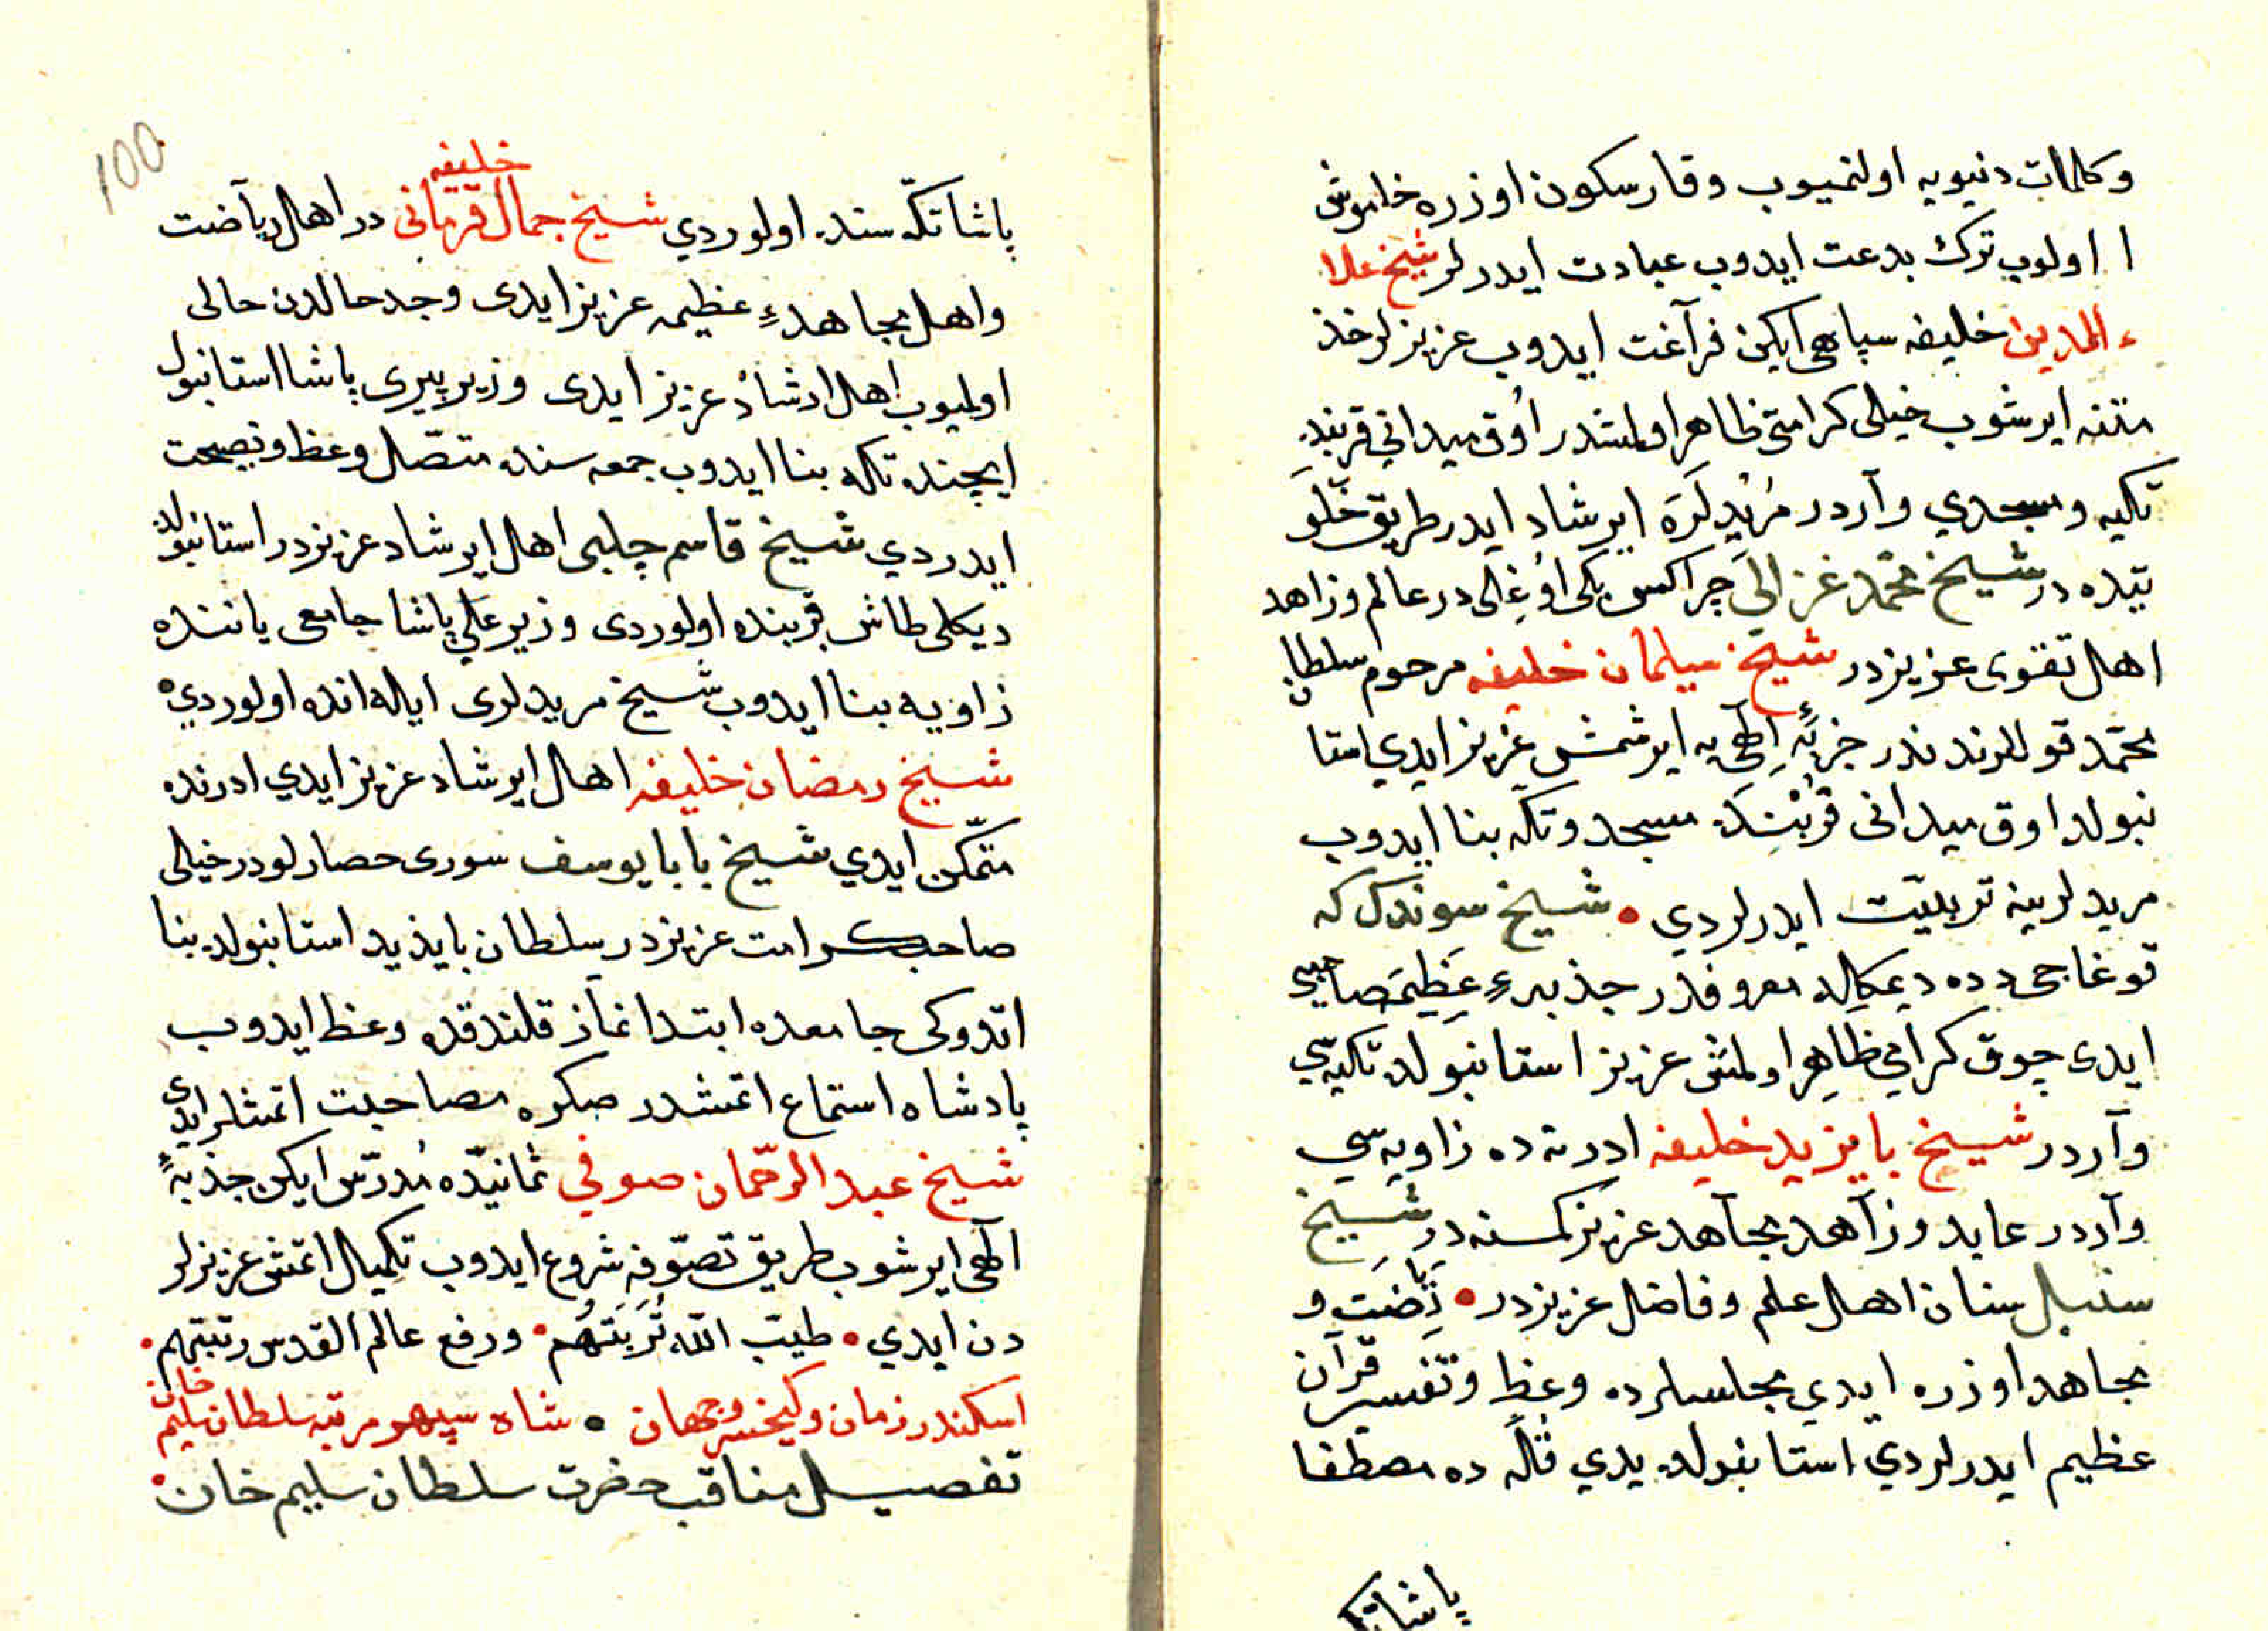 وكلمات دنيويه اولنميوب وقار سكون اوزره خاموش
اولوب ترك بدعت ايدوب عبادت ايدرلر شيخ علا
ء الدين خليفه سپاهى ايكن فرآغت ايدوب عزيزلر خذ
متنه ايرشوب خيلى كرامتى ظاهر اولمشدر اوُق ميدانى قربند
تكيه ومسجدي وآردر مُريْد لَرَه ايرشاد ايدر طريق خَلْوَ
تيده در شيخ محمّد غزالى چراكس بكى اوُغلى در عالم وزاهد
اهل تقوى عزيزدر شيخ سيلمان خليفه مرحوم سلطان
محمّد قوللرندندر جزبَهٔ اِلٓهىيه ايرشمش عزيز ايدي استا
نبولد اوق ميدانى قُرْبْنِدَه مسجد وتكّه بنا ايدوب
مريدلرينه تربيّت ايدرلردي • شيخ سوندك كه
قوغاجى دده ديمكله معروفدر جذبهءِ عَظِيمَه صاحبى
ايدى چوق كرامتى ظاهِر اولمش عزيز استانبولد تكيه سي
وآردر شيخ بايزيد خليفه ادرنه ده زاويه سي
وآردر عابد وزآهد مجآهد عزيز كمسنه در شيخ
سنبل سنان اهل علم وفاضل عزيزدر • رِيَاضَت و
مجاهد اوزره ايدي مجلسلرده وعظ وتفسير قرآن
عظيم ايدرلردي استانبولد يدي قُلّه ده مصطفا
پاشا تكه
100
پاشا تكّه سنده اولوردي شيخ جمال قرمانى خليفه در اهل ريآضت
واهل مجاهدهءِ عظيمه عزيز ايدى وجد حالدن حالى
اولميوب اهل ارشاد عزيز ايدى وزير پيرى پاشا استانبول
ايچنده تكه بنا ايدوب جمعه سنده متصّل وعظ ونصيحت
ايدردي شيخ قاسم چلبى اهل ايرشاد عزيزدر استانبولد
ديكلى طاش قربنده اولوردى وزير على پاشا جامعى ياننده
زاويه بنا ايدوب شيخ مريدلرى ايله انده اولوردي•
شيخ رمضان خليفه اهل ايرشاد عزيز ايدي ادرنده
متمّكن ايدي شيخ بابا يوسف سورى حصارلودر خيلى
صاحب كرامت عزيزدر سلطان بايذيد استانبولد بنا
اتدوكى جامعده ابتدا نماز قلندقده وعظ ايدوب
پادشاه استماع اتمشدر صكره مصاحبت اتمشلر ايدى
شيخ عبد الرحّمان صوفي ثمانيّده مُدرّس ايكن جذبهٔ
آلٓهى ايرشوب طريق تصوّفه شروع ايدوب تكميل اتمش عزيزلر
دن ايدي • طيّب اللّه تُرْبَتَهُم • ورفع عالم القدس رتبتهم •
اسكندر زمان وكيخسرو جهان • شاه سپهر مرتبه سلطان سليم خان
تفصيل مناقب حضرت سلطان سليم خان •